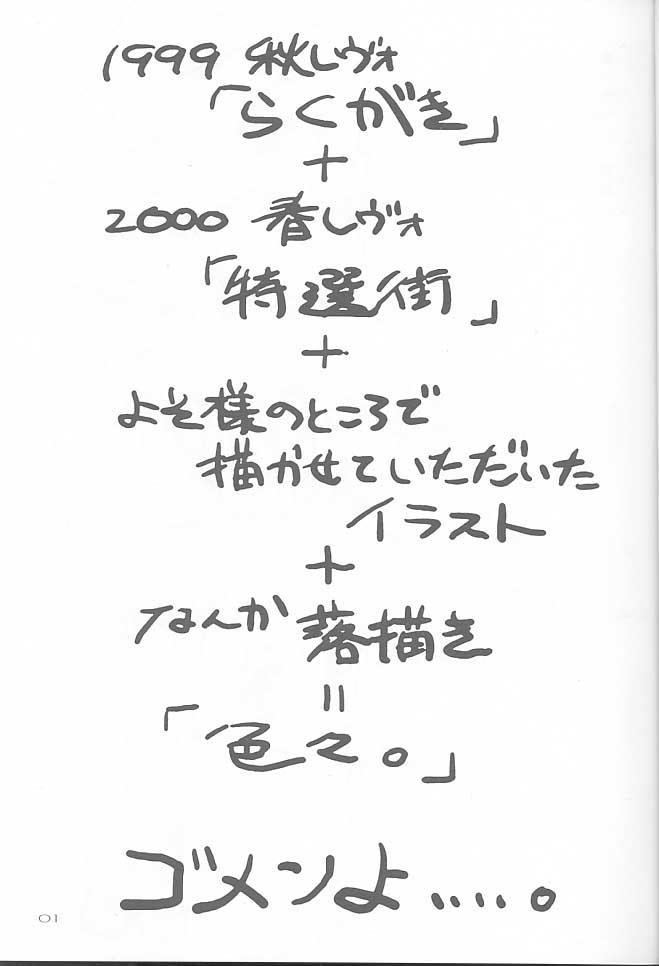 1999 秋レヴォ
「らくがき」
+
2000 春レヴォ
「特選街」
+
よそ様のところで
描かせていただいた
イラスト
+
なんか 落描き
=
「色々。」
ゴメンよ....。
01